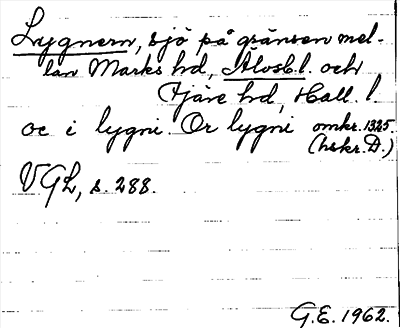 Lygnern, sjö på gränsen mel-
lan Marks hd, Älvsb.l. och
Fjäre hd, Hall. l.
oc i lygni. Or lygni omkr. 1325.
(hskr. D.)
VGL, s. 288.
G.E. 1962.